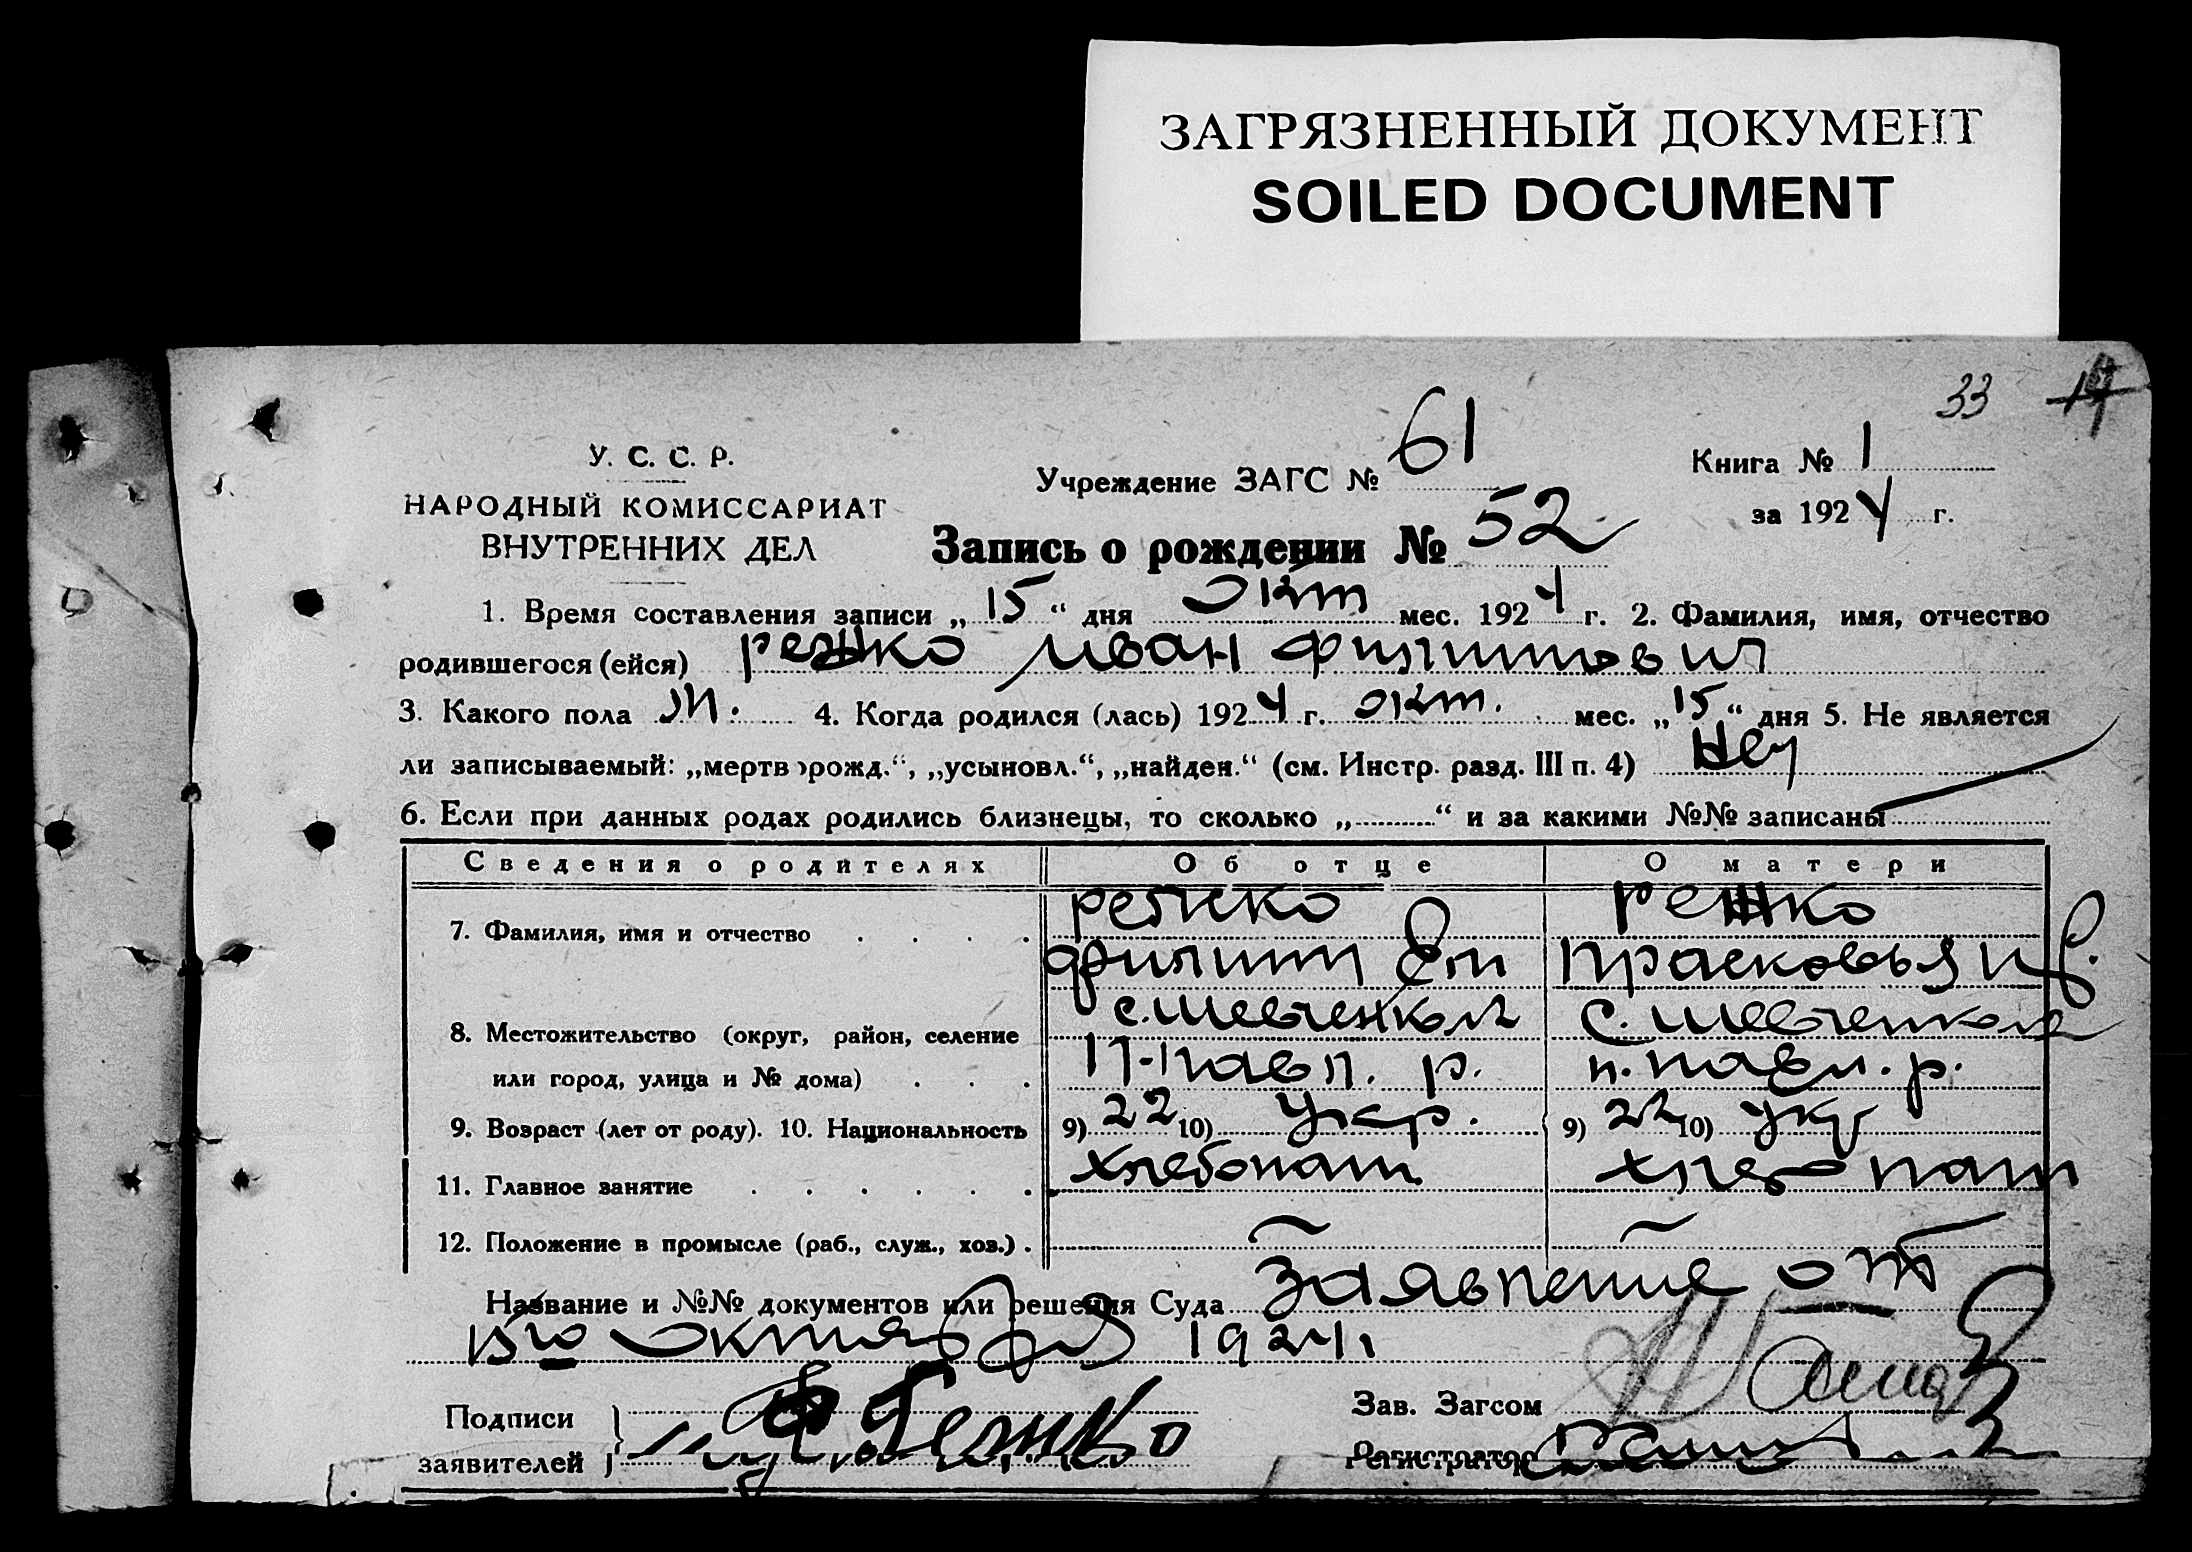 ЗАГРЯЗНЕННЫЙ ДОКУМЕНТ
SOILED DOCUMENT
33
У. С. С. Р.
НАРОДНЫЙ КОМИССАРИАТ
ВНУТРЕННИХ ДЕЛ
Учреждение ЗАГС № 61
Книга № 1
за 1924 г.
Запись о рождении № 52
1. Время составления записи „15“ дня окт мес. 1924 г. 2. Фамилия, имя, отчество
родившегося (ейся) режко Иван Филиппович
3. Какого пола м. 4. Когда родился (лась) 1924 г. окт. мес. „15“ дня 5. Не является
ли записываемый: „мертворожд.“, „усыновл.“, „найден.“ (см. Инстр. разд. III п. 4) Нет
6. Если при данных родах родились близнецы, то сколько „ “ и за какими №№ записаны
Сведения о родителях Об отце О матери
7. Фамилия, имя и отчество режко режко
Филипп Прасковья
8. Местожительство (округ, район, селение с. Шевченково с. Шевченково
или город, улица и № дома) П-Павл. р. п. павл. р.
9. Возраст (лет от роду). 10. Национальность 9) 22 10) Укр. 9) 22 10) Укр
11. Главное занятие хлебопаш хлебопаш
12. Положение в промысле (раб., служ., хоз.)
Название и №№ документов или решения Суда Заявление от
15го Октября 1924
Подписи
заявителей Режко
Зав. Загсом
Регистратор